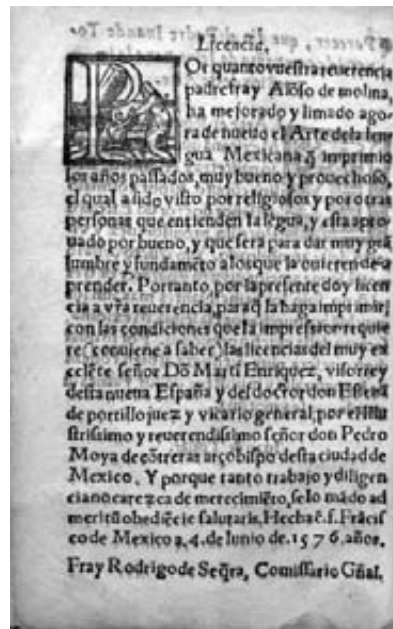 Licencia.
POr quanto vuestra reuerencia
padre fray Alõso de molina,
ha mejorado y limado ago-
ra de nueuo el Arte dela len
gua Mexicana q̃ imprimio
los años passados, muy bueno y prouechoso,
el qual a sido visto por religiosos y por otras
personas que entienden la lẽgua, y esta apro
uado por bueno, y que sera para dar muy grã
lumbre y fundamẽto a los que la ouieren de a
prender. Por tanto, por la presente doy licen
cia a vr̃a reuerencia, para q̃ la haga imprimir,
con las condiciones que la impression requie
re (conuiene a saber) las licencias del muy ex
celẽte señor Dõ Martí Enriquez, visorrey
desta nueua España y del doctor don Esteuã
de portillo juez y vicario general, por el Illu
strissimo y reuerendissimo señor don Pedro
Moya de cõtreras arçobispo desta ciudad de
Mexico. Y porque tanto trabajo y diligen
cia no carezca de merecimiẽto, se lo mãdo ad
meritũ obediẽtie salutaris. Hecha ẽ. s. Frãcis
co de Mexico a, 4. de Iunio de. 1576. años.
Fray Rodrigo de Seq̃ra, Comissario Gñal.